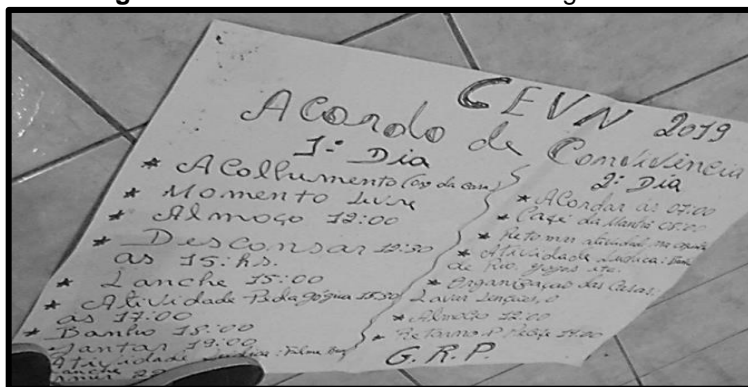 CEVN 2019
Acordo de Convivência
1º Dia
* Acolhimento (org da casa)
* Momento Livre
* Almoço 12:00
* Desconsar 12:30
as 15:hs.
* Lanche 15:00
* Atividade Pedagógica 15:30
as 17:00
* Banho 18:00
* Jantar 19:00
Atividade Filme
2º Dia
* Acordar as 07:00
* Café da Manhã
* Retomar atividad
* Atividade Ludica:
de Rio, jogos etc.
* Organização das Casas,
Lavar Lençois,
* Almoço 12:00
* Retorno P Recife 14:00
G.R.P